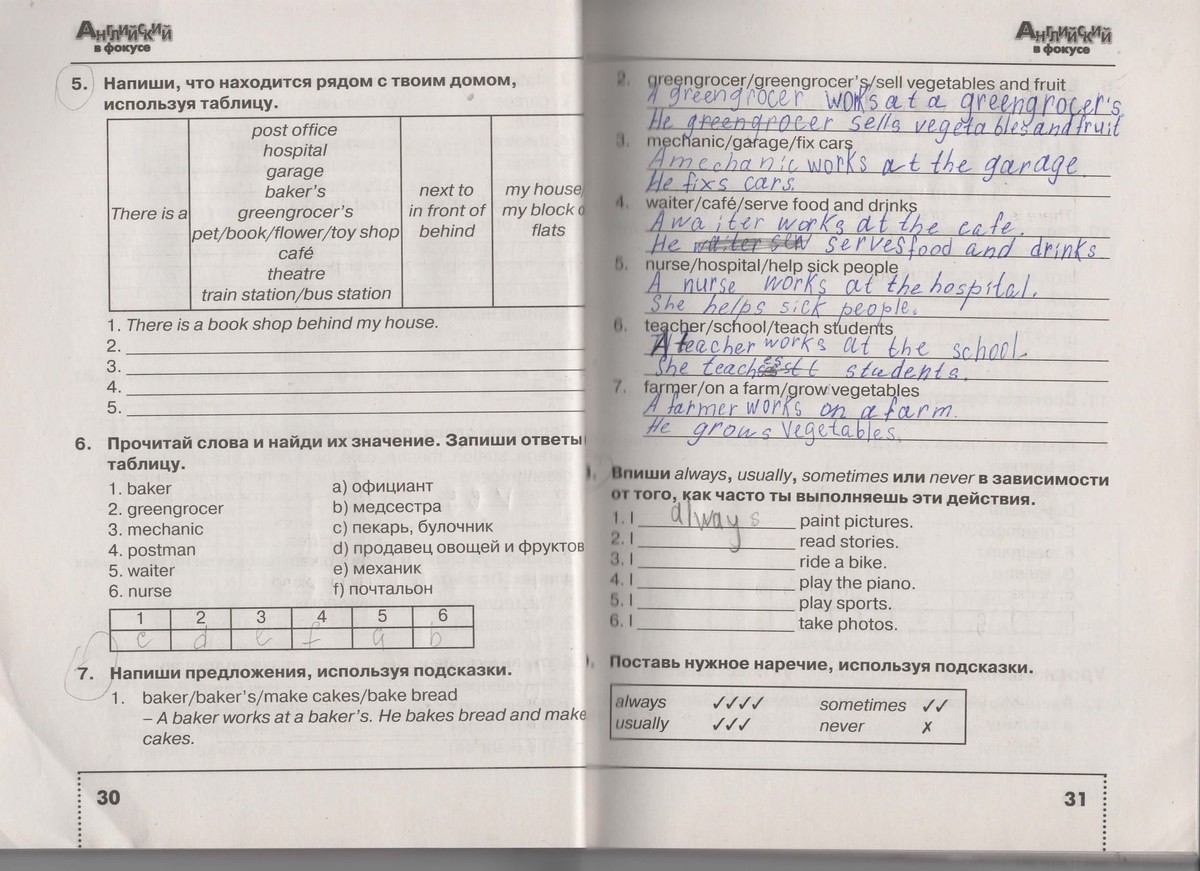 Английский
в фокусе
5. Напиши, что находится рядом с твоим домом,
используя таблицу.
There is a
post office
hospital
garage
baker's
greengrocer's
pet/book/flower/toy shop
café
theatre
train station/bus station
next to
in front of
behind
my house/
my block o
flats
1. There is a book shop behind my house.
2.
3.
4.
5.
6. Прочитай слова и найди их значение. Запиши ответы
таблицу.
1. baker a) официант
2. greengrocer b) медсестра
3. mechanic c) пекарь, булочник
4. postman d) продавец овощей и фруктов
5. waiter e) механик
6. nurse f) почтальон
1 2 3 4 5 6
c d e f a b
7. Напиши предложения, используя подсказки.
1. baker/baker's/make cakes/bake bread
– A baker works at a baker's. He bakes bread and make
cakes.
30
Английский
в фокусе
2. greengrocer/greengrocer's/sell vegetables and fruit
A greengrocer works at a greengrocer's.
He greengrocer sells vegetables and fruit
3. mechanic/garage/fix cars
A mechanic works at the garage.
He fixs cars.
4. waiter/café/serve food and drinks
A waiter works at the cafe.
He serves food and drinks
5. nurse/hospital/help sick people
A nurse works at the hospital.
She helps sick people.
6. teacher/school/teach students
A teacher works at the school
She teaches students.
7. farmer/on a farm/grow vegetables
A farmer works on a farm.
He grows vegetables.
Впиши always, usually, sometimes или never в зависимости
от того, как часто ты выполняешь эти действия.
1. I always paint pictures.
2. I read stories.
3. I ride a bike.
4. I play the piano.
5. I play sports.
6. I take photos.
Поставь нужное наречие, используя подсказки.
always ✓✓✓✓ sometimes ✓✓
usually ✓✓✓ never ✗
31